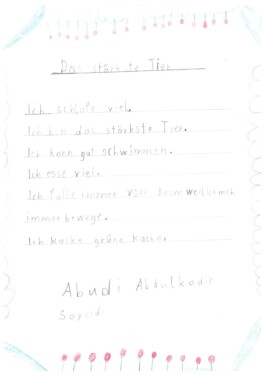 Das stärkste Tier
Ich schlafe viel.
Ich bin das stärkste Tier.
Ich kann gut schwimmen.
Ich esse viel.
Ich falle immer vom Baum weil ich mich
immer bewege.
Ich kacke grüne Kacke.
Abudi Abdulkadir
Sayed